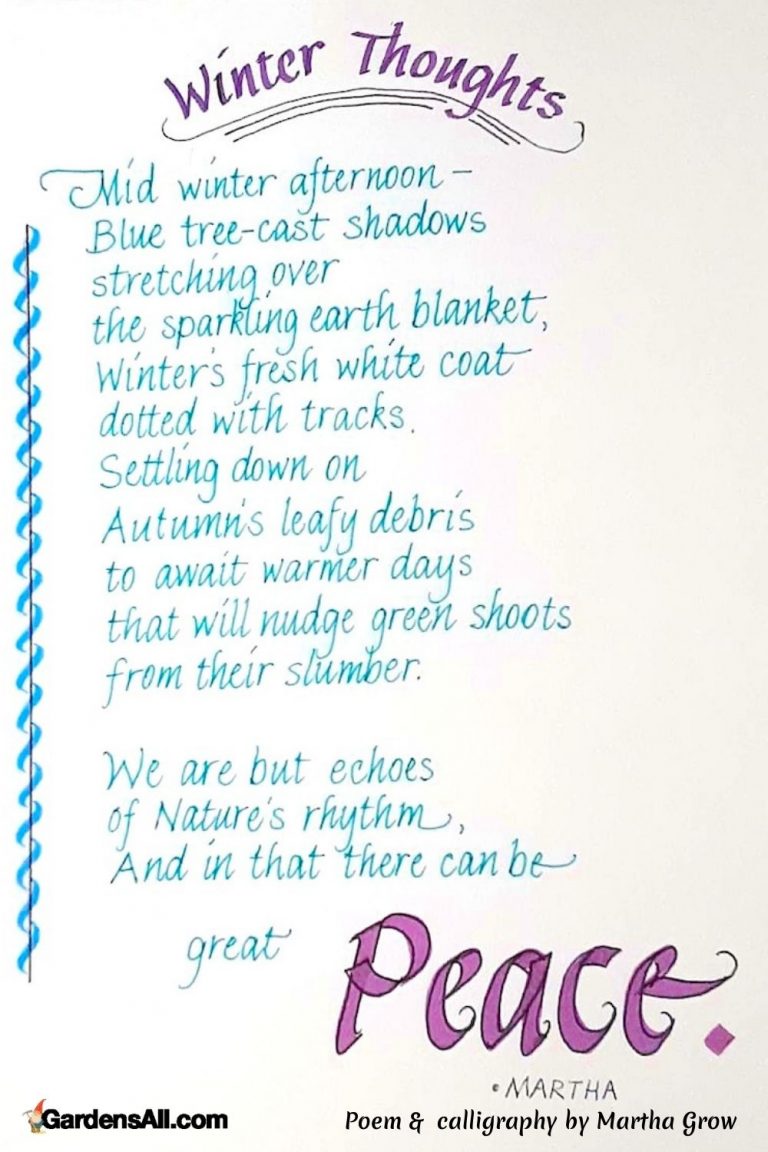 Winter Thoughts
Mid winter afternoon –
Blue tree-cast shadows
stretching over
the sparkling earth blanket,
Winter's fresh white coat
dotted with tracks.
Settling down on
Autumn's leafy debris
to await warmer days
that will nudge green shoots
from their slumber.
We are but echoes
of Nature's rhythm,
And in that there can be
great Peace.
• MARTHA
GardensAll.com
Poem & calligraphy by Martha Grow